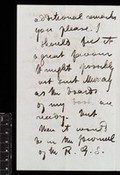 additional remarks
you please. I
should feel it
a great favour
I might possibly
not suit Murray
as the boards
of my book are
ready. But
then it would
be in the Journal
of the R. G. S.